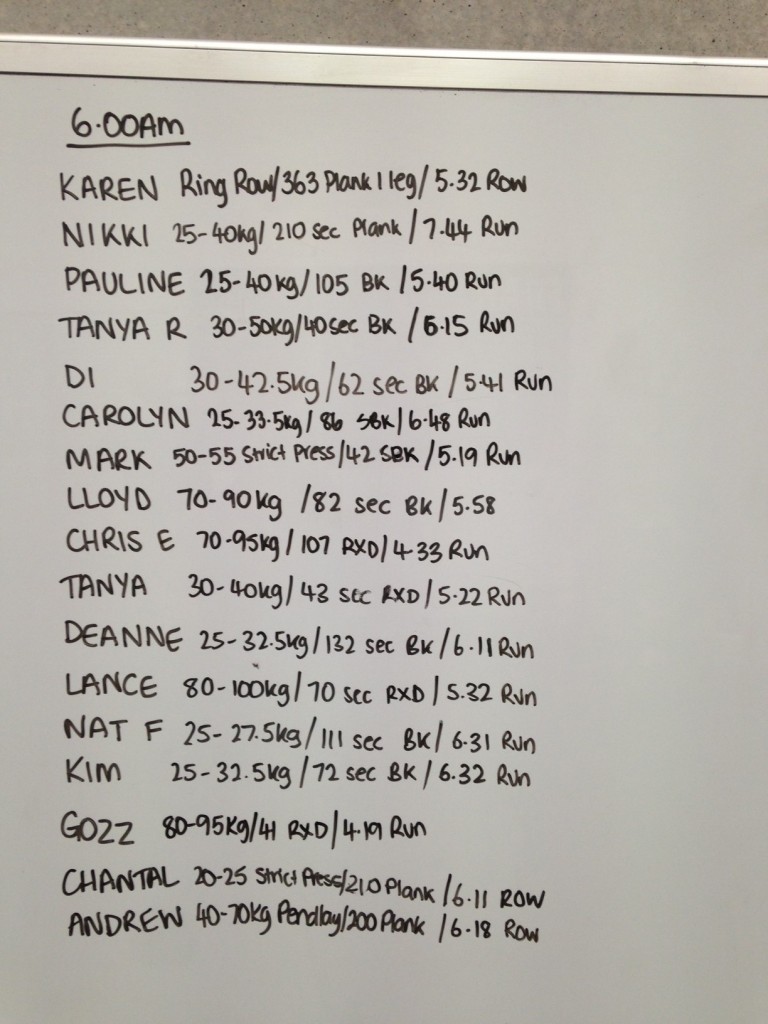 6.00AM
KAREN Ring Row/363 Plank 1 leg/ 5.32 Row
NIKKI 25-40kg/ 210 sec Plank / 7.44 Run
PAULINE 25-40kg/105 BK /5.40 Run
TANYA R 30-50kg/40sec BK /6.15 Run
DI 30-42.5kg/62 sec BK /5.41 Run
CAROLYN 25-33.5kg/ 86 SBK/6.48 Run
MARK 50-55 Strict Press/42 SBK /5.19 Run
LLOYD 70-90kg /82 sec BK/5.58
CHRIS E 70-95kg/107 RXD/4.33 Run
TANYA 30-40kg/43 sec RXD/5.22 Run
DEANNE 25-32.5kg/132 sec BK/6.11 Run
LANCE 80-100kg/70 sec RXD/5.32 Run
NAT F 25-27.5kg/111 sec BK/ 6.31 Run
KIM 25-32.5kg/72 sec BK/6.32 Run
GOZZ 80-95kg/41 RXD/4.19 Run
CHANTAL 20-25 Strict Press/210 Plank /6.11 ROW
ANDREW 40-70kg Pendlay/200 Plank /6.18 Row